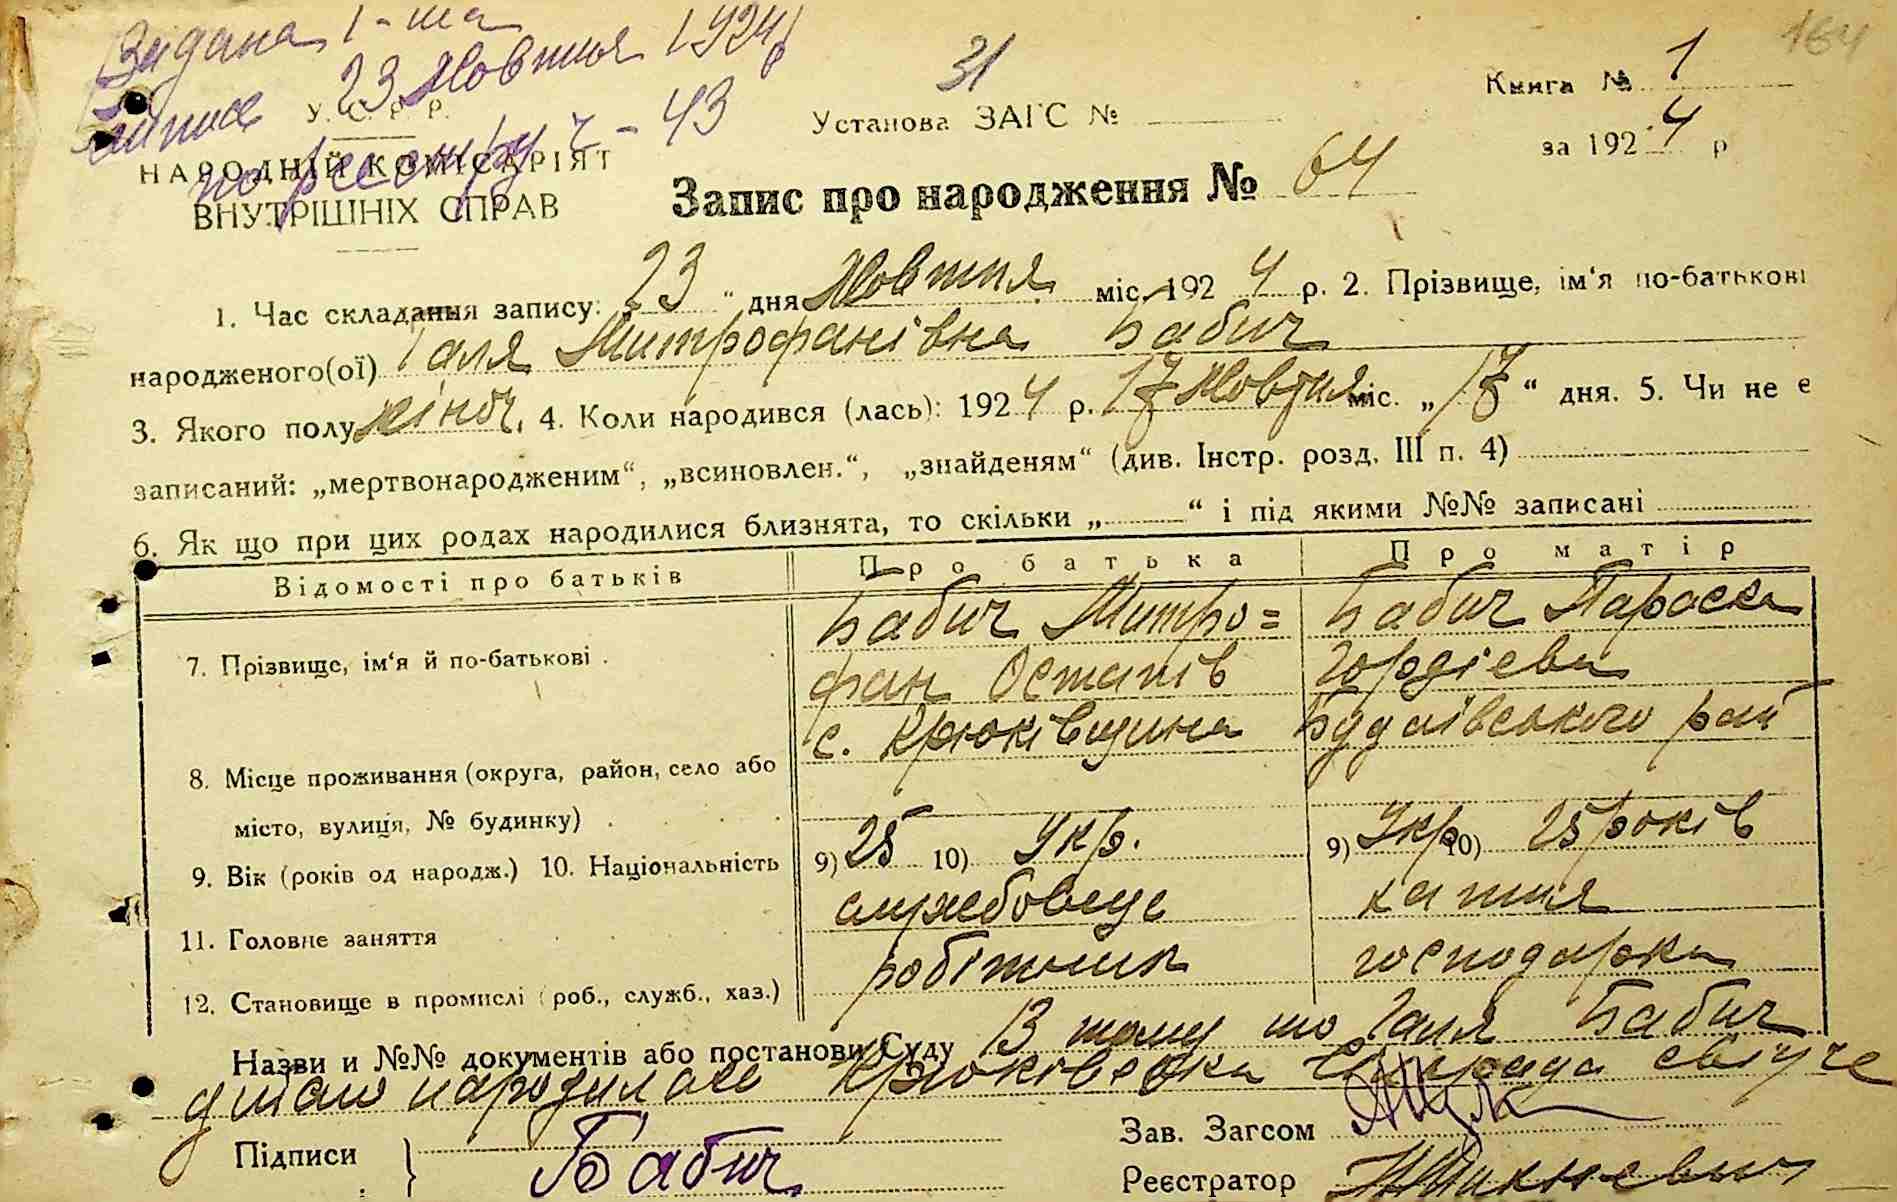 Видана 1-ша
випис 23 Жовтня 1924 р
по реєстру ч - 43
164
У. С. Р. Р.
НАРОДНІЙ КОМІСАРІЯТ
ВНУТРІШНІХ СПРАВ
31
Установа ЗАГС №
Книга № 1
за 1924 р
Запис про народження № 64
1. Час складання запису: 23 " дня Жовтня міс. 1924 р. 2. Прізвище, ім'я по-батькові
народженого(ої) Галя Митрофанівна Бабич
3. Якого полу жіноч. 4. Коли народився (лась): 1924 р. 17 Жовтня міс. „ 17 “ дня. 5. Чи не є
записаний: „мертвонародженим“, „всиновлен.“, „знайденям“ (див. Інстр. розд. III п. 4)
6. Як що при цих родах народилися близнята, то скільки „ “ і під якими №№ записані
Відомості про батьків Про батька Про матір
7. Прізвище, ім'я й по-батькові . Бабич Митро= Бабич Параска
фан Остапів Гордієва
с. Крюківщина Будаївського рай
8. Місце проживання (округа, район, село або
місто, вулиця, № будинку)
9. Вік (років од народж.) 10. Національність 9) 25 10) Укр. 9) Укр. 10) 25 років
11. Головне заняття службовець хатня
12. Становище в промислі (роб., служб., хаз.) робітник господарка
Назви и №№ документів або постанови Суду В тому що Галя Бабич
дійсно народилась Крюківська
Підписи } Бабич
Зав. Загсом
Реєстратор